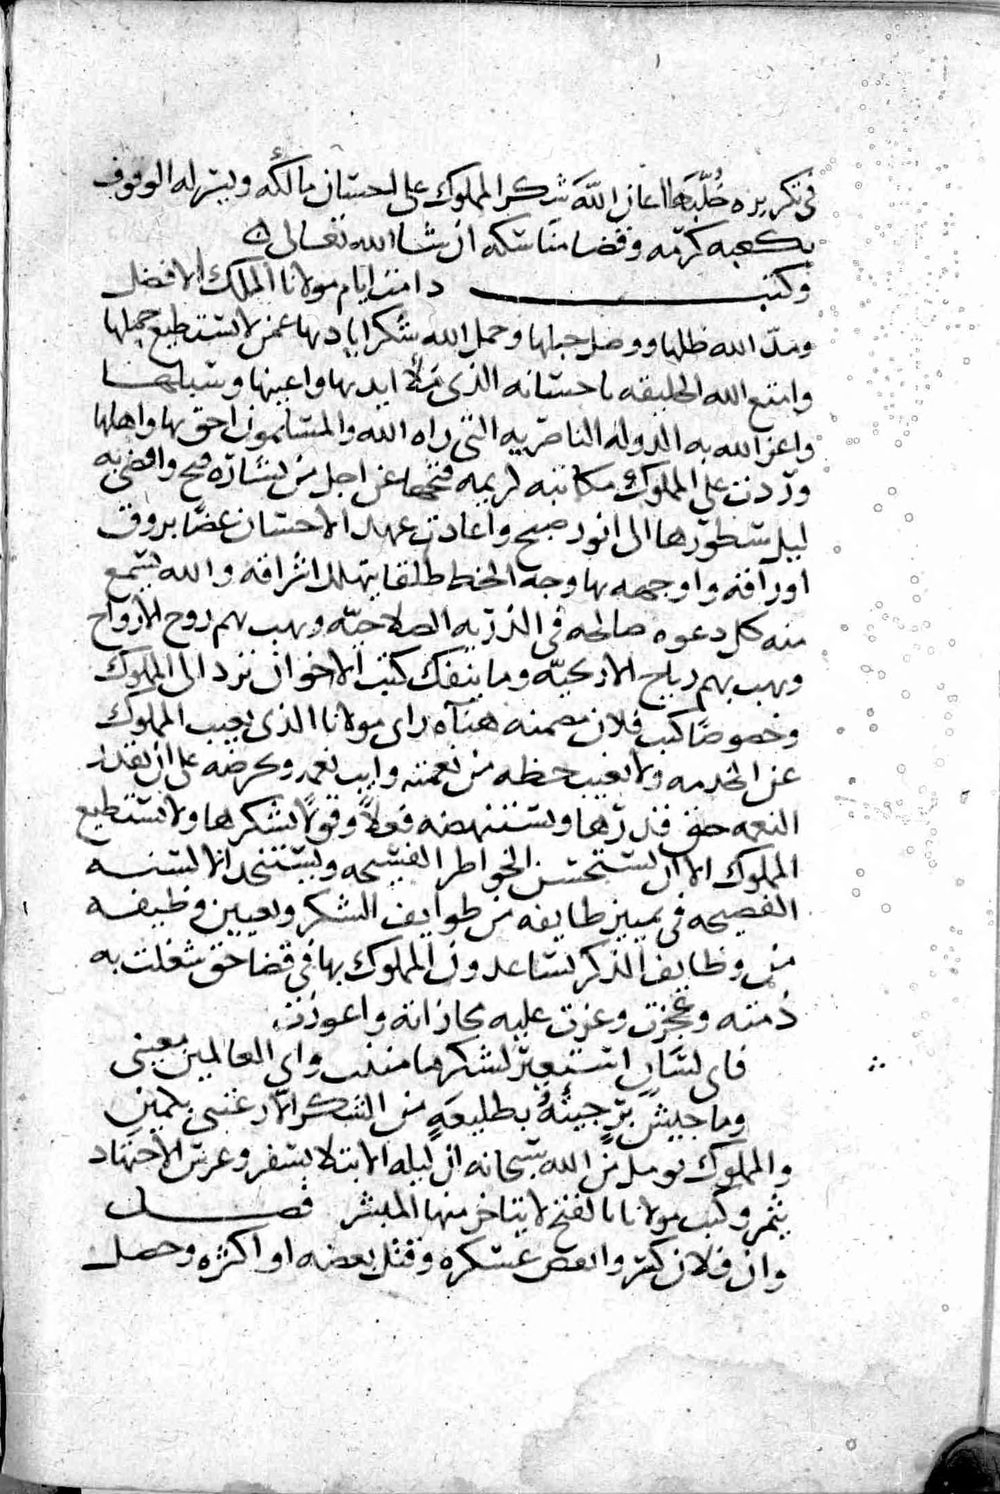 في تكريره خلّبها اعان الله شكر المملوك على احسان مالكه ويسّر له الوقوف
بكعبه كرمه وقضا مناسكه ان شا الله تعالى
وكتب دامت ايام مولانا الملك الافضل
ومدّ الله ظلها ووصل حبلها وحمل الله شكر اياديها عمن لا يستطيع حملها
وامتع الله الخليقه باحسانه الذي ملأ ايديها واعينها وسبلها
واعز الله به الدوله الناصريه التي راه الله والمسلمون احق بها واهلها
وردت على المملوك مكاتبه كريمه فتحها عن اجل من بشاره فتح وافضى به
ليل سطورها الى انور صبح واعادت عهد الاحسان غضّا بروق
اوراقه واوجهه بها وجه الحظ طلقا يتهلل اشراقه والله يسمع
منه كل دعوه صالحه في الذريه الصلاحيّه ويهب بهم روح الارواح
ويهب بهم رياح الاريحيّه وما ينفك كتب الاخوان ترد الى المملوك
وخصوصًا كتب فلان مضمنه هناه راى مولانا الذي يغيب المملوك
عن الخدمه ولا يغيب حظه من نعمته وايب نعمه ويحرضه على ان يقدر
النعمه حق قدرها ويستنهضه فعلاً وقولاً لشكرها ولا يستطيع
المملوك الا ان يستحسن الخواطر الفسيحه ويستنجد الالسنه
الفصيحه في تمييز طايفه من طوايف الشكر وتعيين وظيفه
من وظايف الذكر يساعدون المملوك بها في قضا حق شغلت به
ذمته وعجزت وعزت عليه مجازاته واعوزت
فاي لسان استعير لشكرها منب واي العالمين معيني
وما جيش برّ جيئه بطليعه من الشكر الا رغتني بكمين
والمملوك يومل من الله سبحانه ان ليله الابتلا يسفر وغرس الاجتهاد
يثمر وكتب مولانا بالفتح لا يتاخر منها المبشر فصل
وان فلان كسروا بعض عسكره وقتل بعضه او اكثره وحصل